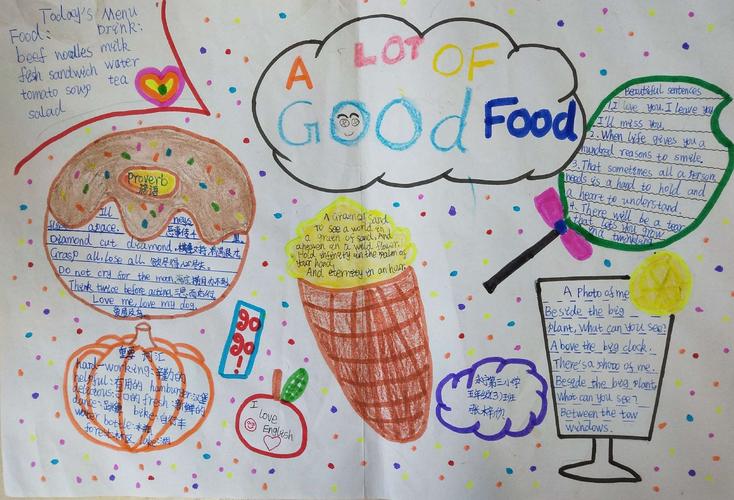 Today's Menu
Food: Drink:
beef noodles milk
fish sandwich water
tomato soup tea
salad
A LOT OF
Good Food
Beautiful sentences
1. I love you. I leave you
I'll miss you.
2. When life gives you a
hundred reasons to
smile.
3. That sometimes all a person
needs is a hand to hold and
a heart to understand.
4. There will be a
that let's you
Proverb
谚语
Ill news
apace.
Diamond cut diamond.
Grasp all, lose all.
Do not cry for the moon.
Think twice before acting. 三思而后行
Love me, love my dog.
爱屋及乌
A Grain of Sand
To see a world in
a grain of sand, And
a heaven in a wild flower.
Hold infinity in the palm of
your hand,
And eternity in an hour.
重要词汇
hard-working:辛勤的
helpful:有用的 hamburger:汉堡
delicious:可口的 fresh:新鲜的
dance:跳舞 bike:自行车
water bottle:水瓶
forest: lake:湖
go
go
!
I love
English
第三小学
五年级(3)班
A Photo of me
Beside the big
plant, What can you see?
Above the big clock.
There's a photo of me.
Beside the big plant
What can you see?
Between the tow
windows.